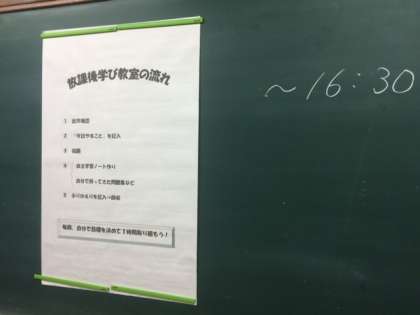 放課後学び教室の流れ
~16:30
① 出席確認
② 「今日やること」を記入
③ 宿題
④ 自主学習ノート作り
自分で持ってきた問題集など
⑤ ふりかえりを記入→
毎回、自分で目標を決めて1時間取り組もう！